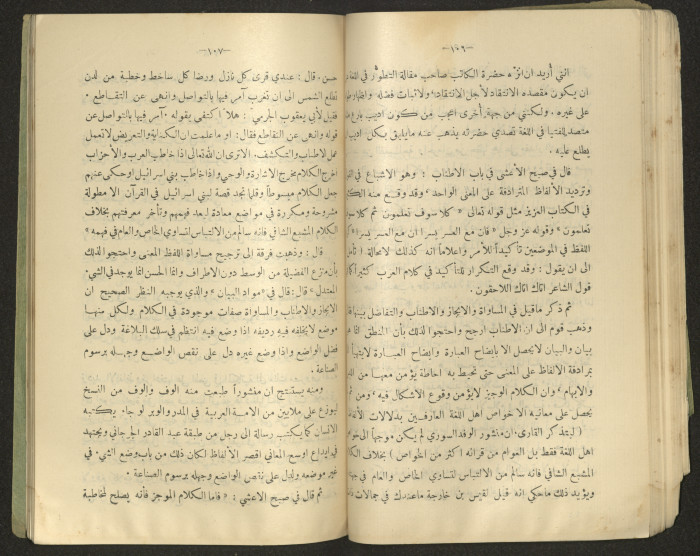 — ١٠٦ —
انني أريد ان انزّه حضرة الكاتب صاحب مقالة التطوّر في اللغة
ان يكون مقصده الانتقاد لاجل الانتقاد، ولاثبات فضله واظهار
على غيره. ولكنني من جهة أخرى اعجب من كون اديب بارع
متصد للفتيا في اللغة تصدي حضرته يذهب عنه مايابق بكل اديب
يطلع عليه.
قال في صبح الأعشى في باب الاطناب: وهو الاشباع في
وترديد الألفاظ المترادفة على المعنى الواحد، وقد وقع منه
في الكتاب العزيز مثل قوله تعالى «كلا سوف تعلمون ثم كلا سوف
تعلمون» وقوله عز وجل «فان مع العسر يسرا ان مع العسر يسرا»
اللفظ في الموضعين تأكيداً للأمر واعلاماً انه كذلك لا محالة
الى ان يقول: وقد وقع التكرار للتأكيد في كلام العرب كثيراً
قول الشاعر اتاك اتاك اللاحقون.
ثم ذكر ماقيل في المساواة والايجاز والاطناب والتفاضل بينها
وذهب قوم الى ان الاطناب ارجح واحتجوا لذلك بأن المنطق
بيان والبيان لايحصل الا بايضاح العبارة وايضاح العبارة لايتهيأ
بمرادفة الالفاظ على المعنى حتى تحيط به احاطة يؤمن معها من
والايهام، وان الكلام الوجيز لايؤمن وقوع الاشكال فيه، ومن
يحصل على معانيه الا خواص اهل اللغة العارفين بدلالات
( ليتذكر القارئ ان منشور الوفد السوري لم يكن موجهاً الى
اهل اللغة فقط بل العوام من قرائه اكثر من الخواص ) بخلاف
المشبع الشافي فانه سالم من الالتباس لتساوي الخاص والعام في
ويؤيد ذلك ماحكي انه قيل لقيس بن خارجة ماعندك في حمالات
— ١٠٧ —
حسن. قال: عندي قرى كل نازل ورضا كل ساخط وخطبة من لدن
تطلع الشمس الى ان تغرب آمر فيها بالتواصل وانهى عن التقاطع.
فقيل لأبي يعقوب الجرمي: هلاّ اكتفى بقوله «آمر فيها بالتواصل» عن
قوله وانهى عن التقاطع فقال: او ماعلمت ان الكناية والتعريض لا تعمل
عمل الاطناب والتكشف. الا ترى ان الله تعالى اذا خاطب العرب والأعراب
اخرج الكلام مخرج الاشارة والوحي واذا خاطب بني اسرائيل او حكى عنهم
جعل الكلام مبسوطاً وقلما تجد قصة لبني اسرائيل في القرآن الا مطولة
مشروحة ومكررة في مواضع معادة لبعد فهمهم وتأخر معرفتهم بخلاف
الكلام المشبع الشافي فانه سالم من الالتباس لتساوي الخاص والعام في فهمه»
قال: وذهبت فرقة الى ترجيح مساواة اللفظ المعنى واحتجوا لذلك
بأن منزع الفضيلة من الوسط دون الاطراف وانما الحسن انما يوجد في الشيء
المعتدل» قال: قال في «مواد البيان» والذي يوجبه النظر الصحيح ان
الايجاز والاطناب والمساواة صفات موجودة في الكلام ولكل منها
موضع لايخلفه فيه رديفه اذا وضع فيه انتظم في سلك البلاغة ودل على
فضل الواضع واذا وضع غيره دل على نقص الواضع وجهله برسوم
الصناعة.
ومنه يستنتج ان منشوراً طبعت منه الوف والوف من النسخ
ليوزع على ملايين من الامة العربية في المدر والوبر لو جاء يكتبه
الانسان كما يكتب رسالة الى رجل من طبقة عبد القادر الجرجاني ويجتهد
في ايداع اوسع المعاني اقصر الألفاظ لكان ذلك من باب وضع الشيء في
غير موضعه ولدل على نقص الواضع وجهله برسوم الصناعة.
ثم قال في صبح الاعشى: «فاما الكلام الموجز فأنه يصلح لمخاطبة